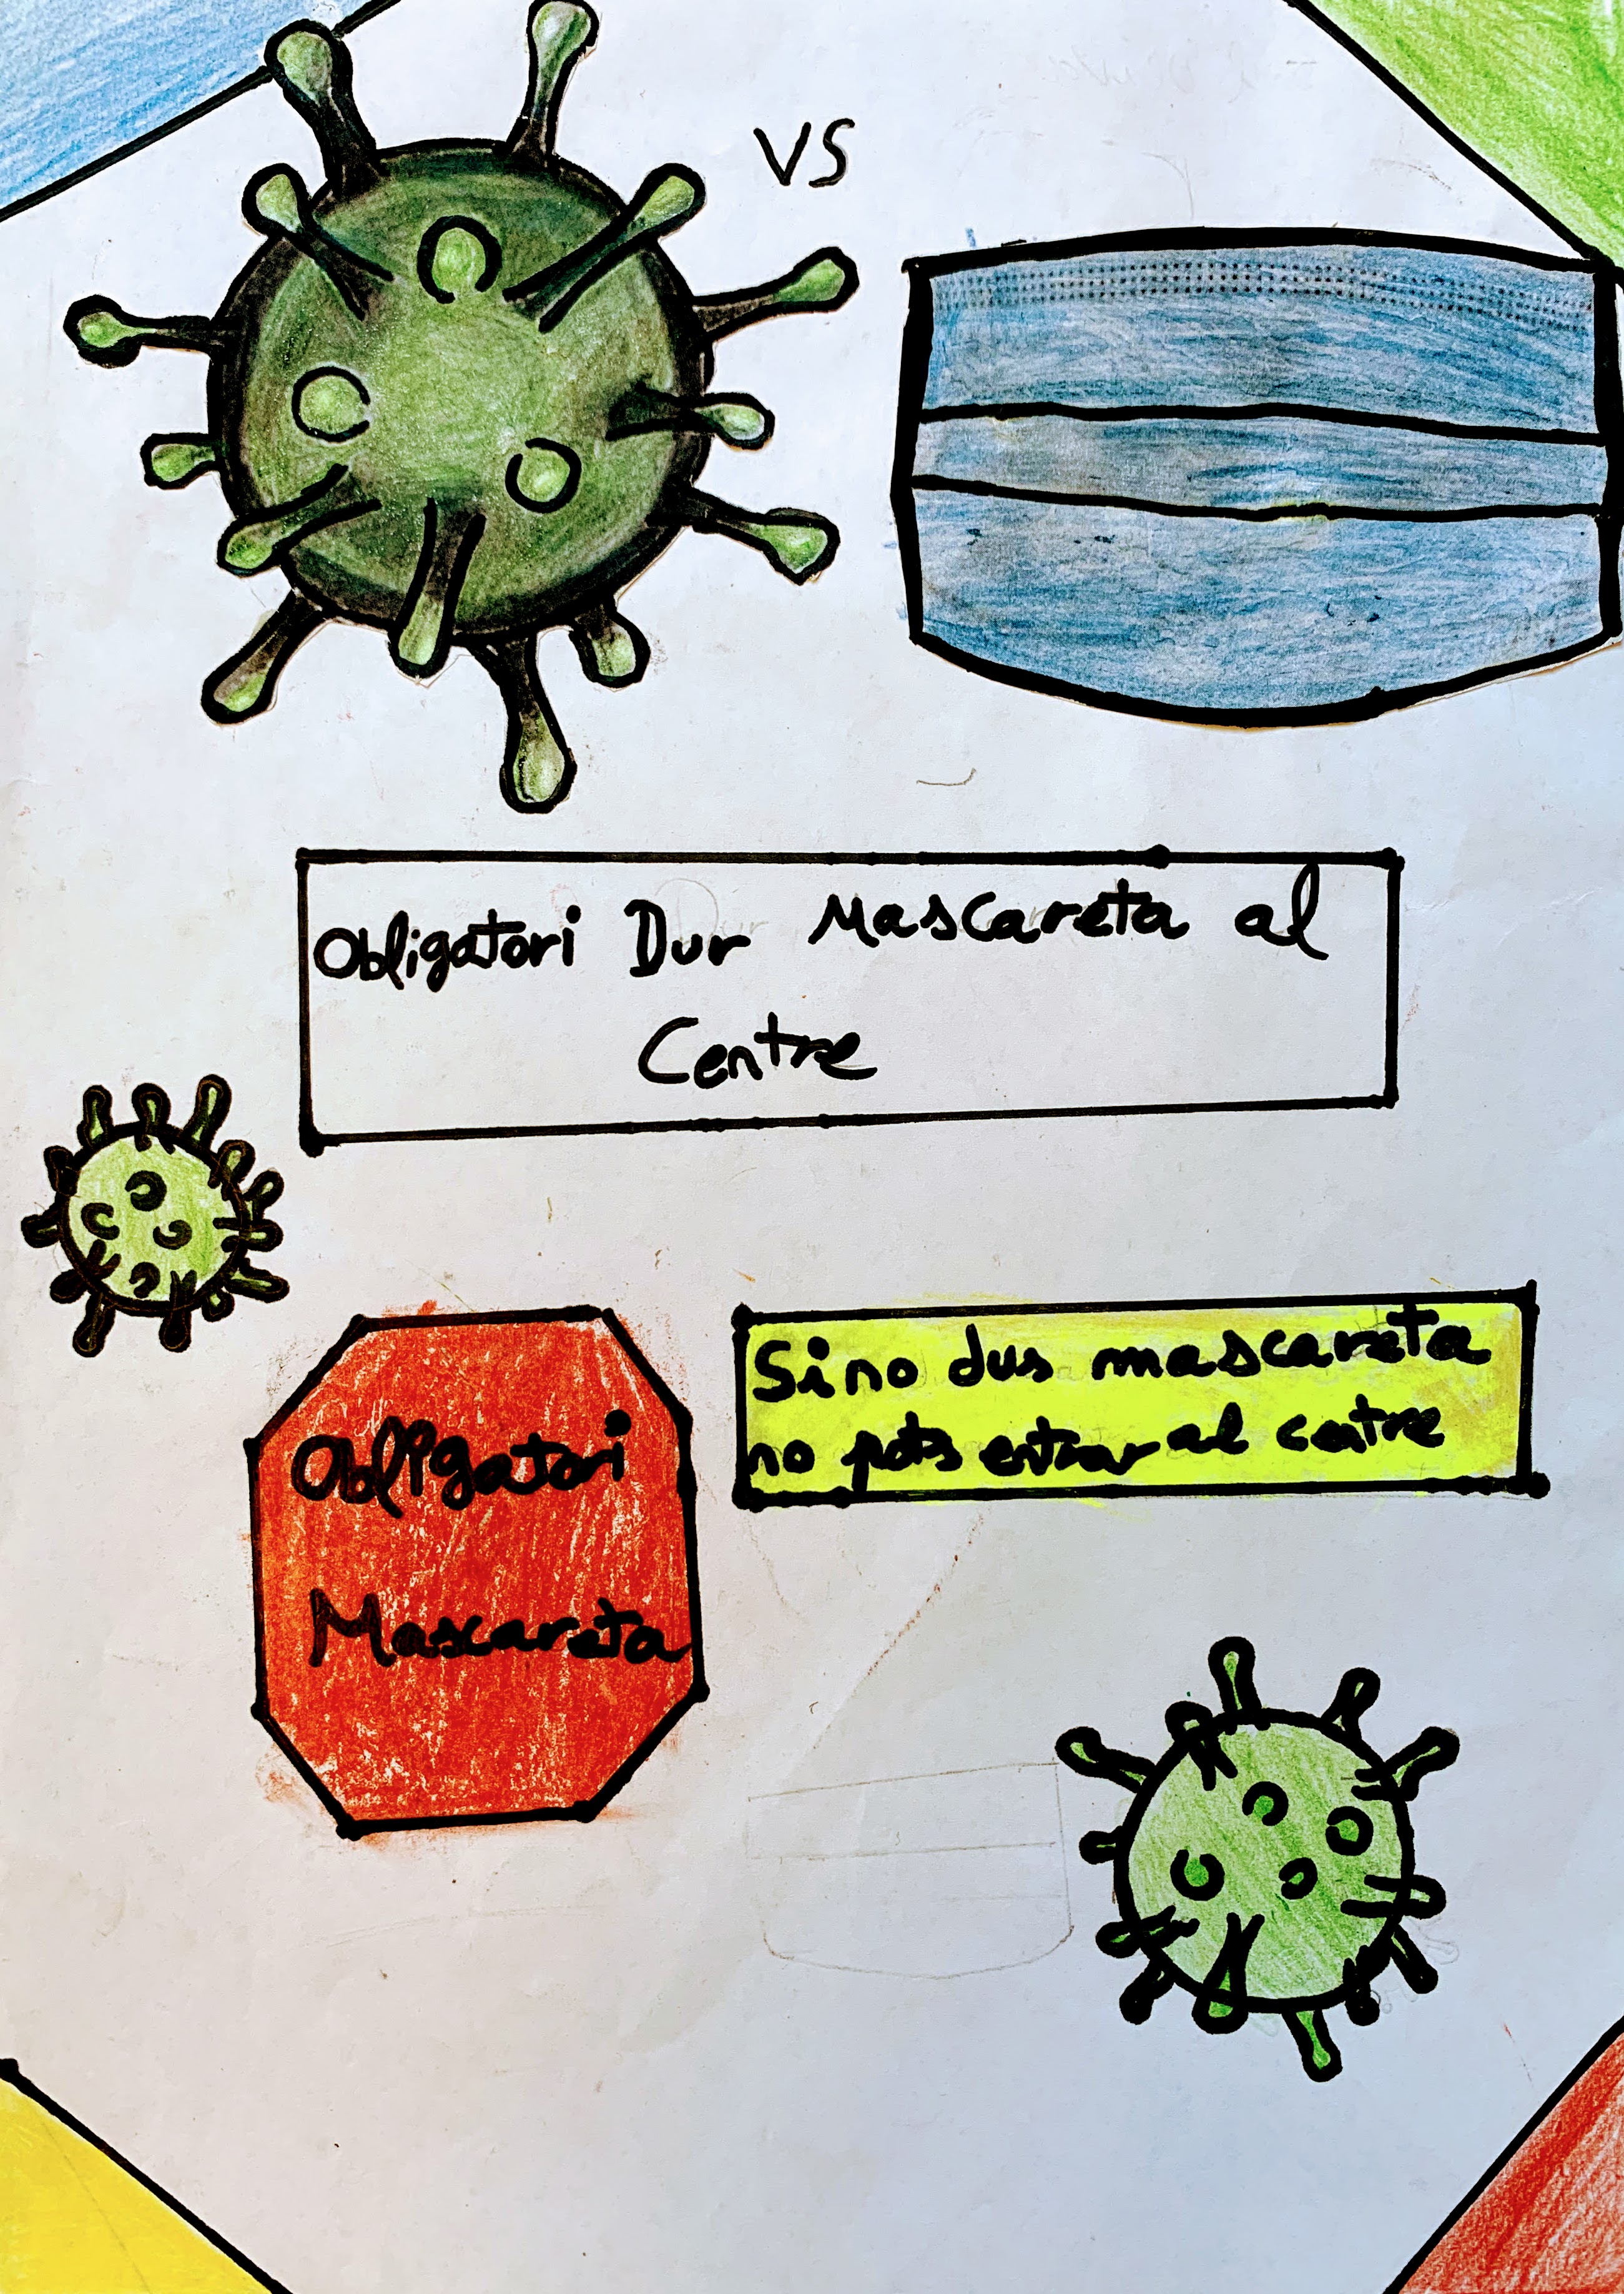 VS
Obligatori Dur Mascareta al
Centre
Sino dus mascareta
no pots entrar al centre
Obligatori
Mascareta